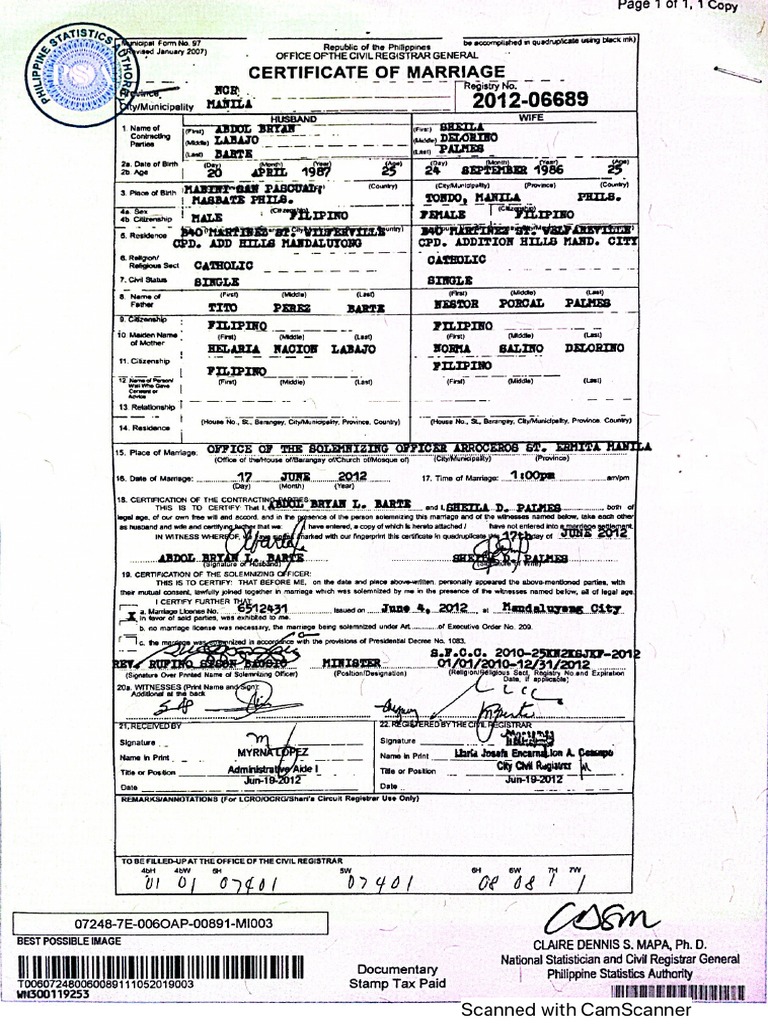 Page 1 of 1, 1 Copy
PHILIPPINE STATISTICS AUTHORITY
PSA
Municipal Form No. 97
(Revised January 2007)
be accomplished in quadruplicate using black ink)
Republic of the Philippines
OFFICE OF THE CIVIL REGISTRAR GENERAL
CERTIFICATE OF MARRIAGE
Province NCR
City/Municipality MANILA
Registry No.
2012-06689
HUSBAND WIFE
1. Name of Contracting Parties (First) ABDOL BRYAN (First) SHEILA
(Middle) LABAJO (Middle) DELORINO
(Last) BARTE (Last) PALMES
2a. Date of Birth (Day) (Month) (Year) (Age) (Day) (Month) (Year) (Age)
2b Age 20 APRIL 1987 25 24 SEPTEMBER 1986 25
3. Place of Birth MABINI SAN PASCUAL, (Country) (City/Municipality) (Province) (Country)
MASBATE PHILS. TONDO, MANILA PHILS.
4a. Sex (Citizenship) (Citizenship)
4b Citizenship MALE FILIPINO FEMALE FILIPINO
5. Residence 840 MARTINEZ ST. Country) 840 MARTINEZ ST. WELFAREVILLE
CPD. ADD HILLS MANDALUYONG CPD. ADDITION HILLS MAND. CITY
6. Religion/ Religious Sect CATHOLIC CATHOLIC
7. Civil Status SINGLE SINGLE
8. Name of Father (First) (Middle) (Last) (First) (Middle) (Last)
TITO PEREZ BARTE NESTOR PORCAL PALMES
9. Citizenship FILIPINO FILIPINO
10 Maiden Name of Mother (First) (Middle) (Last) (First) (Middle) (Last)
HELARIA NACION LABAJO NORMA SALINO DELORINO
11. Citizenship FILIPINO FILIPINO
12. Name of Person/ Wali Who Gave Consent or Advice (First) (Middle) (Last) (First) (Middle) (Last)
13. Relationship
14. Residence (House No., St., Barangay, City/Municipality, Province, Country) (House No., St., Barangay, City/Municipality, Province, Country)
15. Place of Marriage: OFFICE OF THE SOLEMNIZING OFFICER ARROCEROS ST. ERMITA MANILA
(Office of the/House of/Barangay of/Church of/Mosque of) (City/Municipality) (Province)
16. Date of Marriage: 17 JUNE 2012 17. Time of Marriage: 1:00pm am/pm
(Day) (Month) (Year)
18. CERTIFICATION OF THE CONTRACTING PARTIES
THIS IS TO CERTIFY: That I, ABDOL BRYAN L. BARTE and I, SHEILA D. PALMES both of
legal age, of our own free will and accord, and in the presence of the person solemnizing this marriage and of the witnesses named below, take each other
as husband and wife and certifying further that we: have entered, a copy of which is hereto attached / have not entered into a marriage settlement.
IN WITNESS WHEREOF, we signed/marked with our fingerprint this certificate in quadruplicate this 17th day of JUNE 2012
ABDOL BRYAN L. BARTE SHEILA D. PALMES
(Signature of Husband) (Signature of Wife)
19. CERTIFICATION OF THE SOLEMNIZING OFFICER:
THIS IS TO CERTIFY: THAT BEFORE ME, on the date and place above-written, personally appeared the above-mentioned parties, with
their mutual consent, lawfully joined together in marriage which was solemnized by me in the presence of the witnesses named below, all of legal age.
I CERTIFY FURTHER THAT
x a. Marriage License No. 6512431 issued on June 4, 2012, at Mandaluyong City
in favor of said parties, was exhibited to me.
b. no marriage license was necessary, the marriage being solemnized under Art. of Executive Order No. 209.
c. the marriage was solemnized in accordance with the provisions of Presidential Decree No. 1083.
S.F.O.C. 2010-25KN2KSJKF-2012
REV. RUFINO MINISTER 01/01/2010-12/31/2012
(Signature Over Printed Name of Solemnizing Officer) (Position/Designation) (Religion/Religious Sect, Registry No and Expiration Date, if applicable)
20a. WITNESSES (Print Name and Sign)
Additional at the back
21. RECEIVED BY 22. REGISTERED BY THE CIVIL REGISTRAR
Signature Signature
Name in Print MYRNA LOPEZ Name in Print Maria Josefa Encarnacion A. Ocampo
Title or Position Administrative Aide I Title or Position City Civil Registrar
Date Jun-19-2012 Date Jun-19-2012
REMARKS/ANNOTATIONS (For LCRO/OCRG/Shari's Circuit Registrar Use Only)
TO BE FILLED-UP AT THE OFFICE OF THE CIVIL REGISTRAR
4bH 4bW 5H 5W 6H 6W 7H 7W
01 01 07401 07401 08 08 1 1
07248-7E-006OAP-00891-MI003
BEST POSSIBLE IMAGE
T006072480060089111052019003
WN300119253
Documentary
Stamp Tax Paid
CLAIRE DENNIS S. MAPA, Ph. D.
National Statistician and Civil Registrar General
Philippine Statistics Authority
Scanned with CamScanner